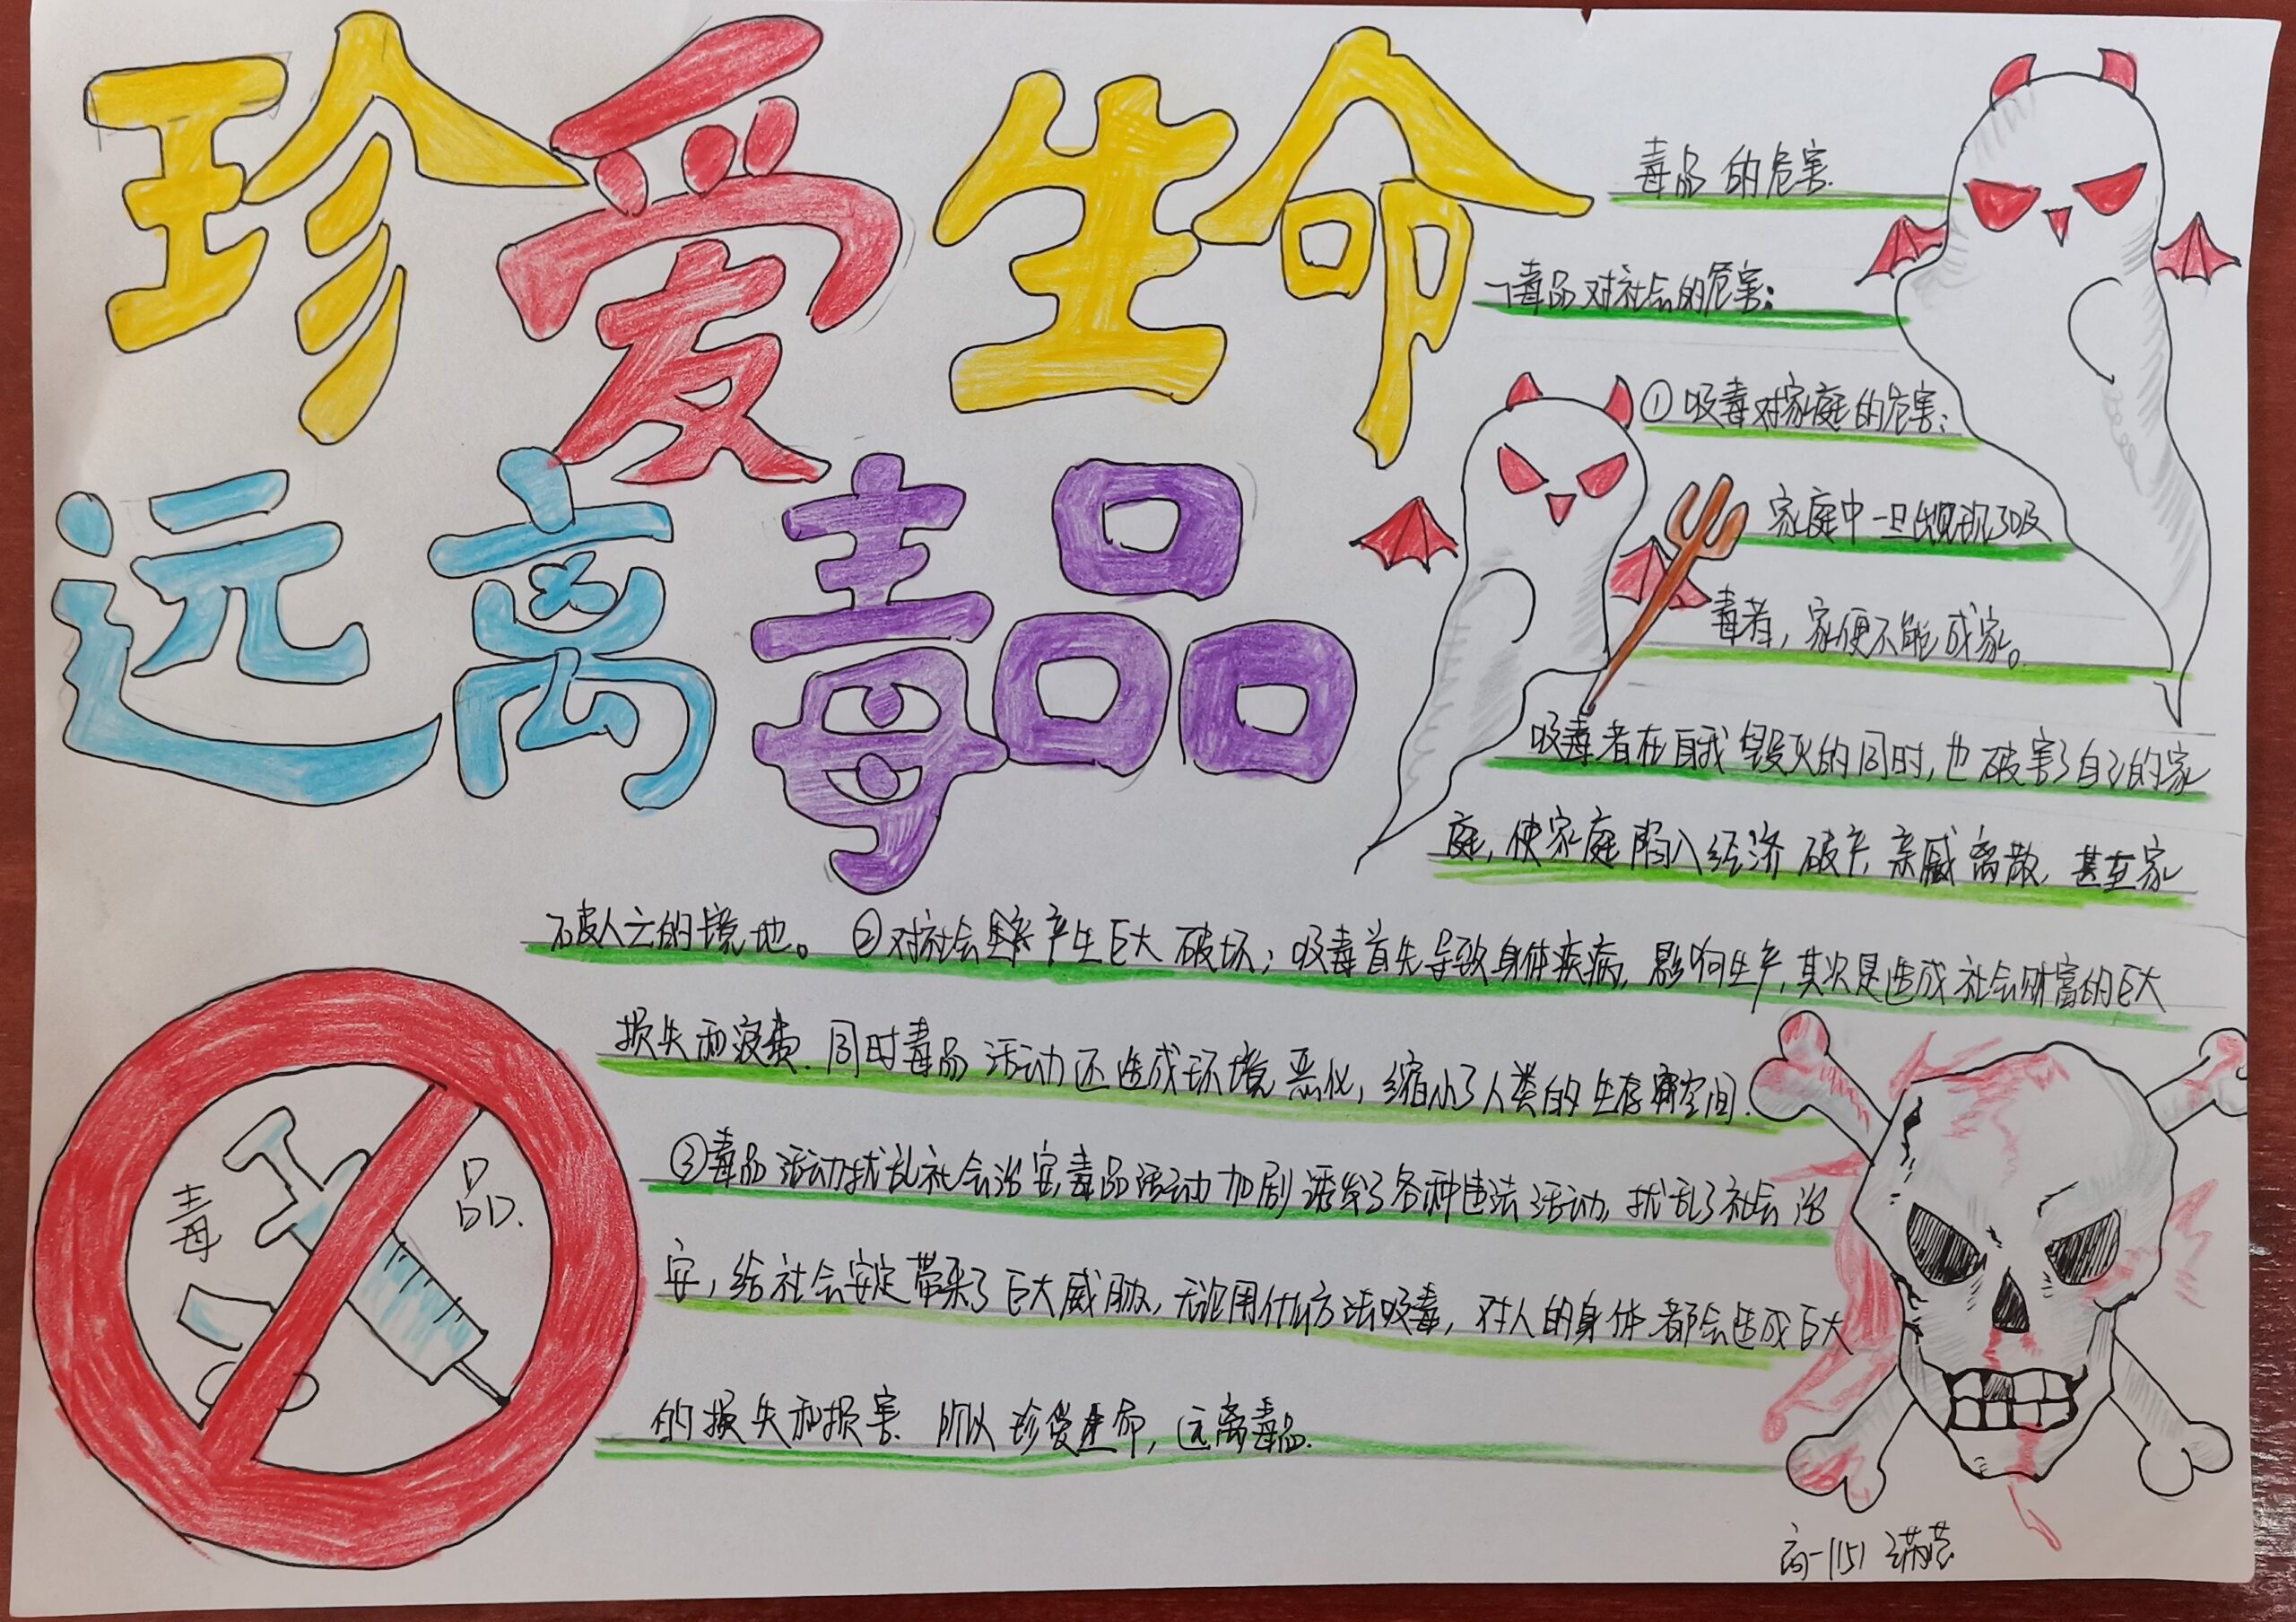 珍爱生命
远离毒品
毒品的危害
一毒品对社会的危害:
①吸毒对家庭的危害:
家庭中一旦出现了吸
毒者,家便不能成家。
吸毒者在自我毁灭的同时,也破害了自己的家
庭,使家庭陷入经济破产亲戚离散,甚至家
破人亡的境地。②对社会产生巨大破坏;吸毒首先导致身体疾病,影响生产,其次是造成社会财富的巨大
损失和浪费.同时毒品活动还造成环境恶化,缩小了人类的生存空间.
③毒品活动扰乱社会治安,毒品活动加剧诱发了各种违法活动,扰乱了社会治
安,给社会安定带来了巨大威胁,无论用什么方法吸毒,对人的身体都会造成巨大
的损失和损害.所以珍爱生命,远离毒品.
毒
品
高一(15)